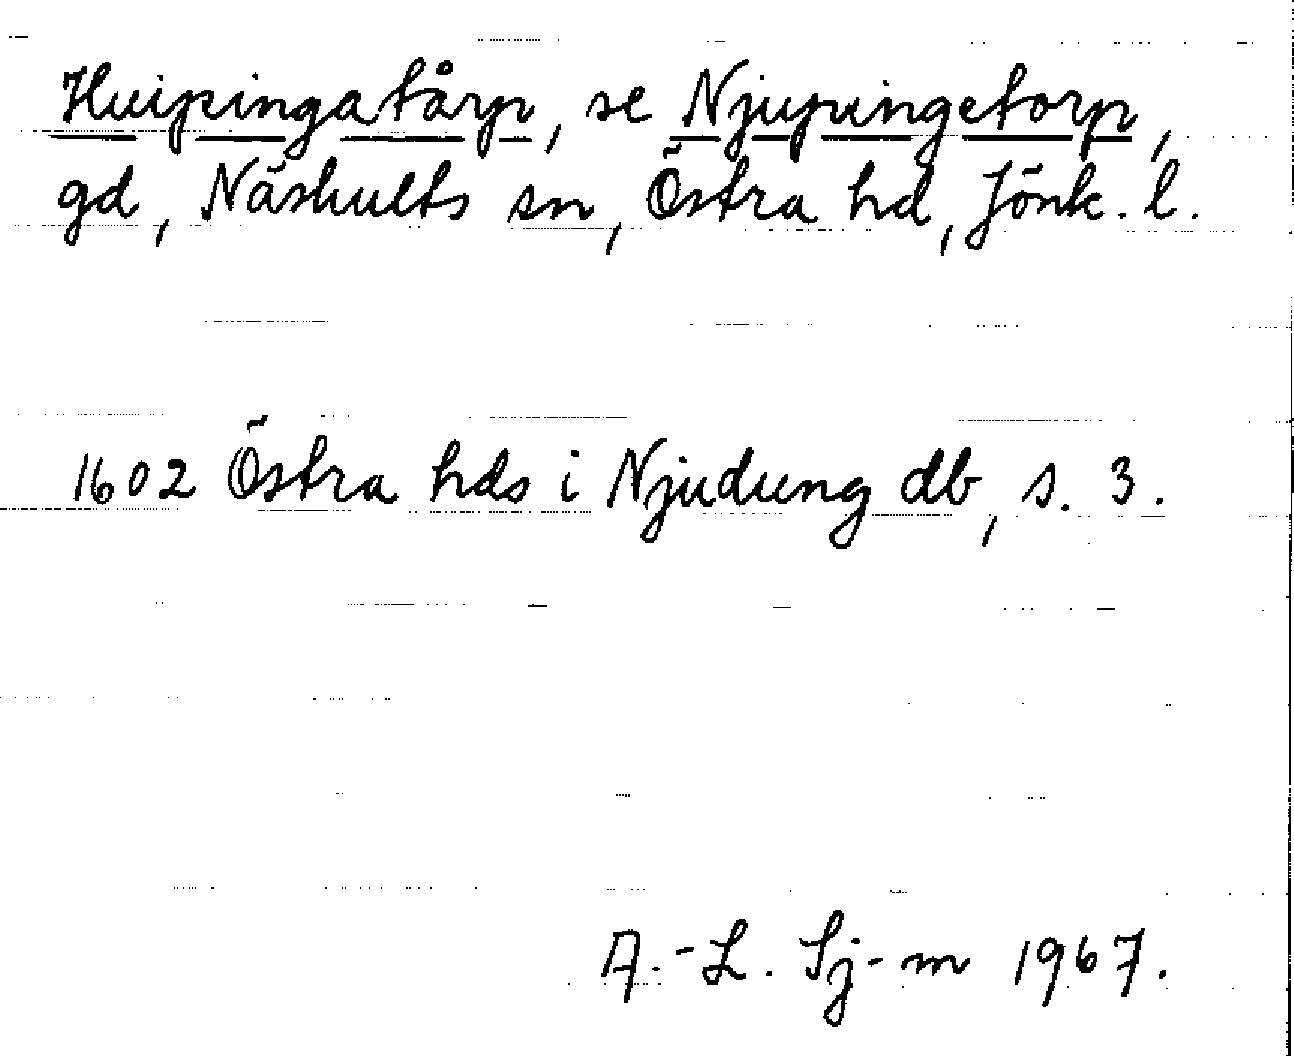 Huipingatårp, se Njupingetorp,
gd, Näshults sn, Östra hd, Jönk. l.
1602 Östra hds i Njudung db, s. 3.
A.-L. Sj-m 1967.